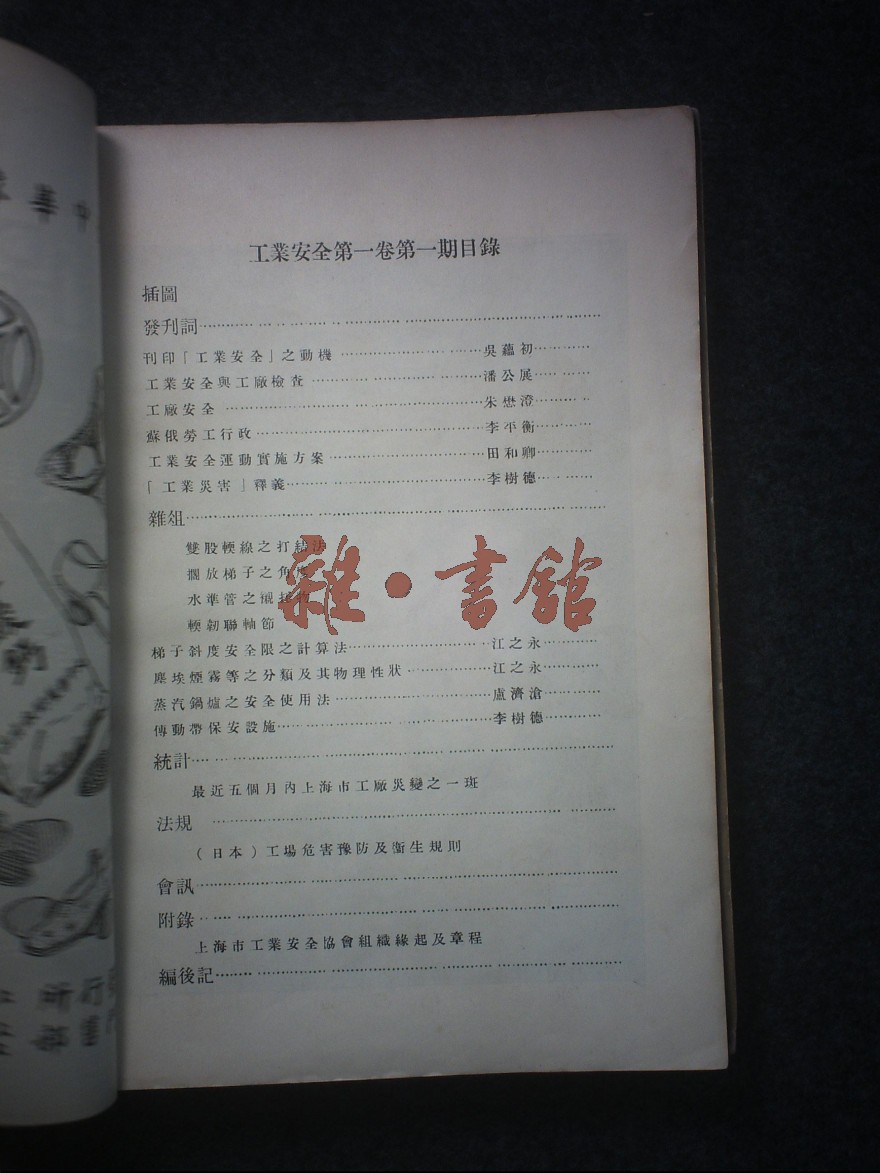 工業安全第一卷第一期目錄
插圖
發刊詞
刊印「工業安全」之動機 吳蘊初
工業安全與工廠檢查 潘公展
工廠安全 朱懋澄
蘇俄勞工行政 李平衡
工業安全運動實施方案 田和卿
「工業災害」釋義 李樹德
雜俎
雙股輭線之打結法
擱放梯子之角度
水準管之
輭韌聯軸節
梯子斜度安全限之計算法 江之永
塵埃煙霧等之分類及其物理性狀 江之永
蒸汽鍋爐之安全使用法 盧濟滄
傳動帶保安設施 李樹德
統計
最近五個月內上海市工廠災變之一斑
法規
(日本)工場危害豫防及衞生規則
會訊
附錄
上海市工業安全協會組織緣起及章程
編後記
雜·書館
中華
所行
部書